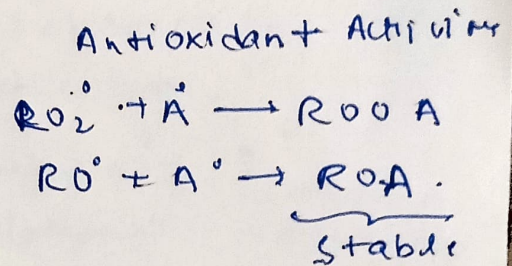 Antioxidant Activity
RO₂° + A° → ROOA
RO° + A° → ROA.
Stable